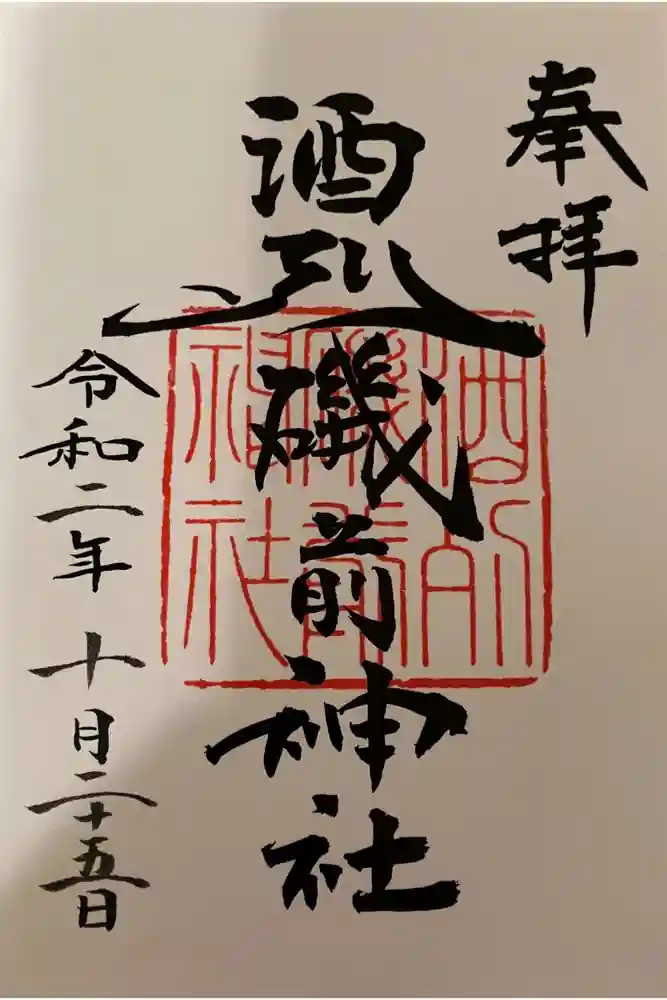 奉拝
酒列磯前神社
令和二年十月二十五日
酒列
磯前
神社